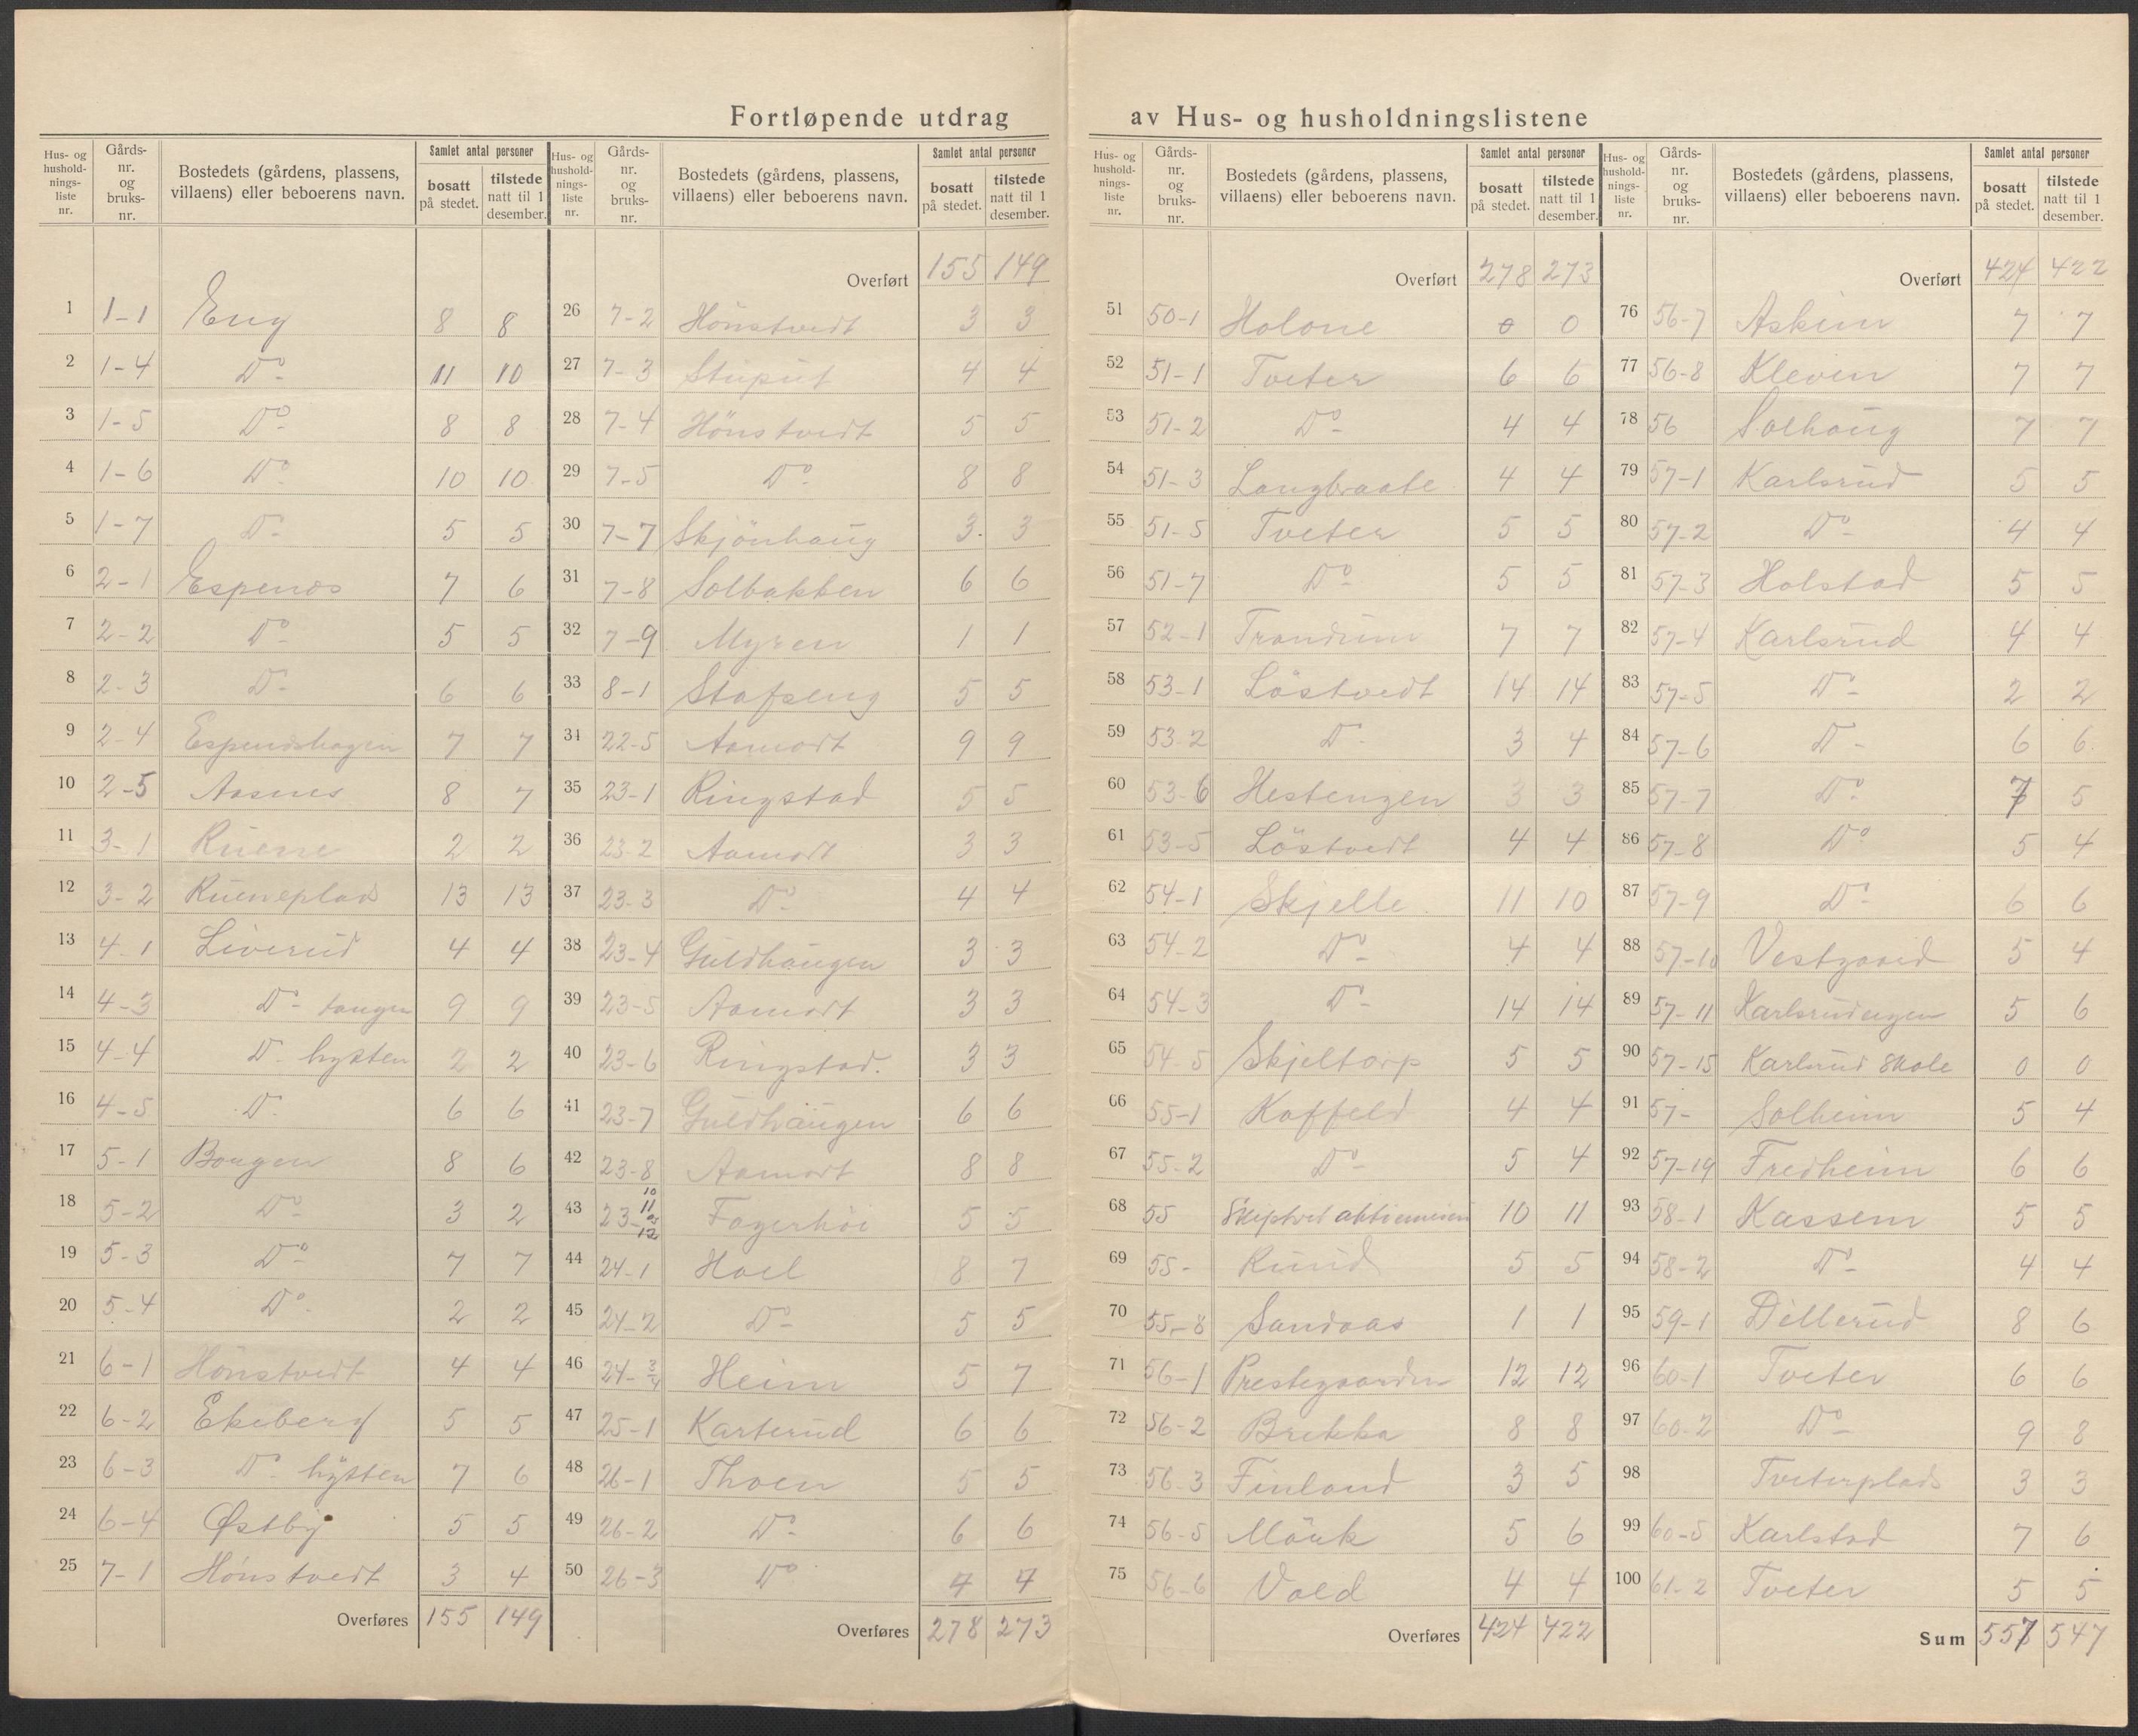 Fortløpende utdrag av Hus- og husholdningslistene
Hus- og hushold-nings-liste nr. | Gårds-nr. og bruks-nr. | Bostedets (gårdens, plassens, villaens) eller beboerens navn. | Samlet antal personer bosatt på stedet. | tilstede natt til 1 desember.
1 1-1 Eng 8 8
2 1-4 Do 11 10
3 1-5 Do 8 8
4 1-6 Do 10 10
5 1-7 Do 5 5
6 2-1 Espenes 7 6
7 2-2 Do 5 5
8 2-3 Do 6 6
9 2-4 Espenshagen 7 7
10 2-5 Aasnes 8 7
11 3-1 Ruene 2 2
12 3-2 Rueneplads 13 13
13 4-1 Liverud 4 4
14 4-3 Do tangen 9 9
15 4-4 Do hytten 2 2
16 4-5 Do 6 6
17 5-1 Bougen 8 6
18 5-2 Do 3 2
19 5-3 Do 7 7
20 5-4 Do 2 2
21 6-1 Hönstvedt 4 4
22 6-2 Ekeberg 5 5
23 6-3 Do hytten 7 6
24 6-4 Østby 5 5
25 7-1 Hönstvedt 3 4
Overføres 155 149
Hus- og hushold-nings-liste nr. | Gårds-nr. og bruks-nr. | Bostedets (gårdens, plassens, villaens) eller beboerens navn. | Samlet antal personer bosatt på stedet. | tilstede natt til 1 desember.
Overført 155 149
26 7-2 Hönstvedt 3 3
27 7-3 Stuput 4 4
28 7-4 Hönstvedt 5 5
29 7-5 Do 8 8
30 7-7 Skjönhaug 3 3
31 7-8 Solbakken 6 6
32 7-9 Myren 1 1
33 8-1 Stafseng 5 5
34 22-5 Aamodt 9 9
35 23-1 Ringstad 5 5
36 23-2 Aamodt 3 3
37 23-3 Do 4 4
38 23-4 Guldhaugen 3 3
39 23-5 Aamodt 3 3
40 23-6 Ringstad. 3 3
41 23-7 Guldhaugen 6 6
42 23-8 Aamodt 8 8
43 23-10 11 12 Fagerhöi 5 5
44 24-1 Hoel 8 7
45 24-2 Do 5 5
46 24-3/4 Heim 5 7
47 25-1 Karterud 6 6
48 26-1 Thoen 5 5
49 26-2 Do 6 6
50 26-3 Do 4 4
Overføres 278 273
Hus- og hushold-nings-liste nr. | Gårds-nr. og bruks-nr. | Bostedets (gårdens, plassens, villaens) eller beboerens navn. | Samlet antal personer bosatt på stedet. | tilstede natt til 1 desember.
Overført 278 273
51 50-1 Holone 0 0
52 51-1 Tveter 6 6
53 51-2 Do 4 4
54 51-3 Langbraate 4 4
55 51-5 Tveter 5 5
56 51-7 Do 5 5
57 52-1 Trondrum 7 7
58 53-1 Löstvedt 14 14
59 53-2 Do 3 4
60 53-6 Hestengen 3 3
61 53-5 Löstvedt 4 4
62 54-1 Skjelle 11 10
63 54-2 Do 4 4
64 54-3 Do 14 14
65 54-5 Skjeltorp 5 5
66 55-1 Koffeld 4 4
67 55-2 Do 5 4
68 55 Skeptvet aktiemeieri 10 11
69 55- Ruud 5 5
70 55-8 Sandaas 1 1
71 56-1 Prestegaarden 12 12
72 56-2 Brekka 8 8
73 56-3 Finland 3 5
74 56-5 Mörk 5 6
75 56-6 Vold 4 4
Overføres 424 422
Hus- og hushold-nings-liste nr. | Gårds-nr. og bruks-nr. | Bostedets (gårdens, plassens, villaens) eller beboerens navn. | Samlet antal personer bosatt på stedet. | tilstede natt til 1 desember.
Overført 424 422
76 56-7 Askim 7 7
77 56-8 Kleven 7 7
78 56 Solhaug 7 7
79 57-1 Karlsrud 5 5
80 57-2 Do 4 4
81 57-3 Holstad 5 5
82 57-4 Karlsrud 4 4
83 57-5 Do 2 2
84 57-6 Do 6 6
85 57-7 Do 7 5
86 57-8 Do 5 4
87 57-9 Do 6 6
88 57-10 Vestgaard 5 4
89 57-11 Karlsrudengen 5 6
90 57-15 Karlsrud Skole 0 0
91 57- Solheim 5 4
92 57-19 Fredheim 6 6
93 58-1 Kassem 5 5
94 58-2 Do 4 4
95 59-1 Dillerud 8 6
96 60-1 Tveter 6 6
97 60-2 Do 9 8
98 Tveterplads 3 3
99 60-5 Karlstad 7 6
100 61-2 Tveter 5 5
Sum 557 547